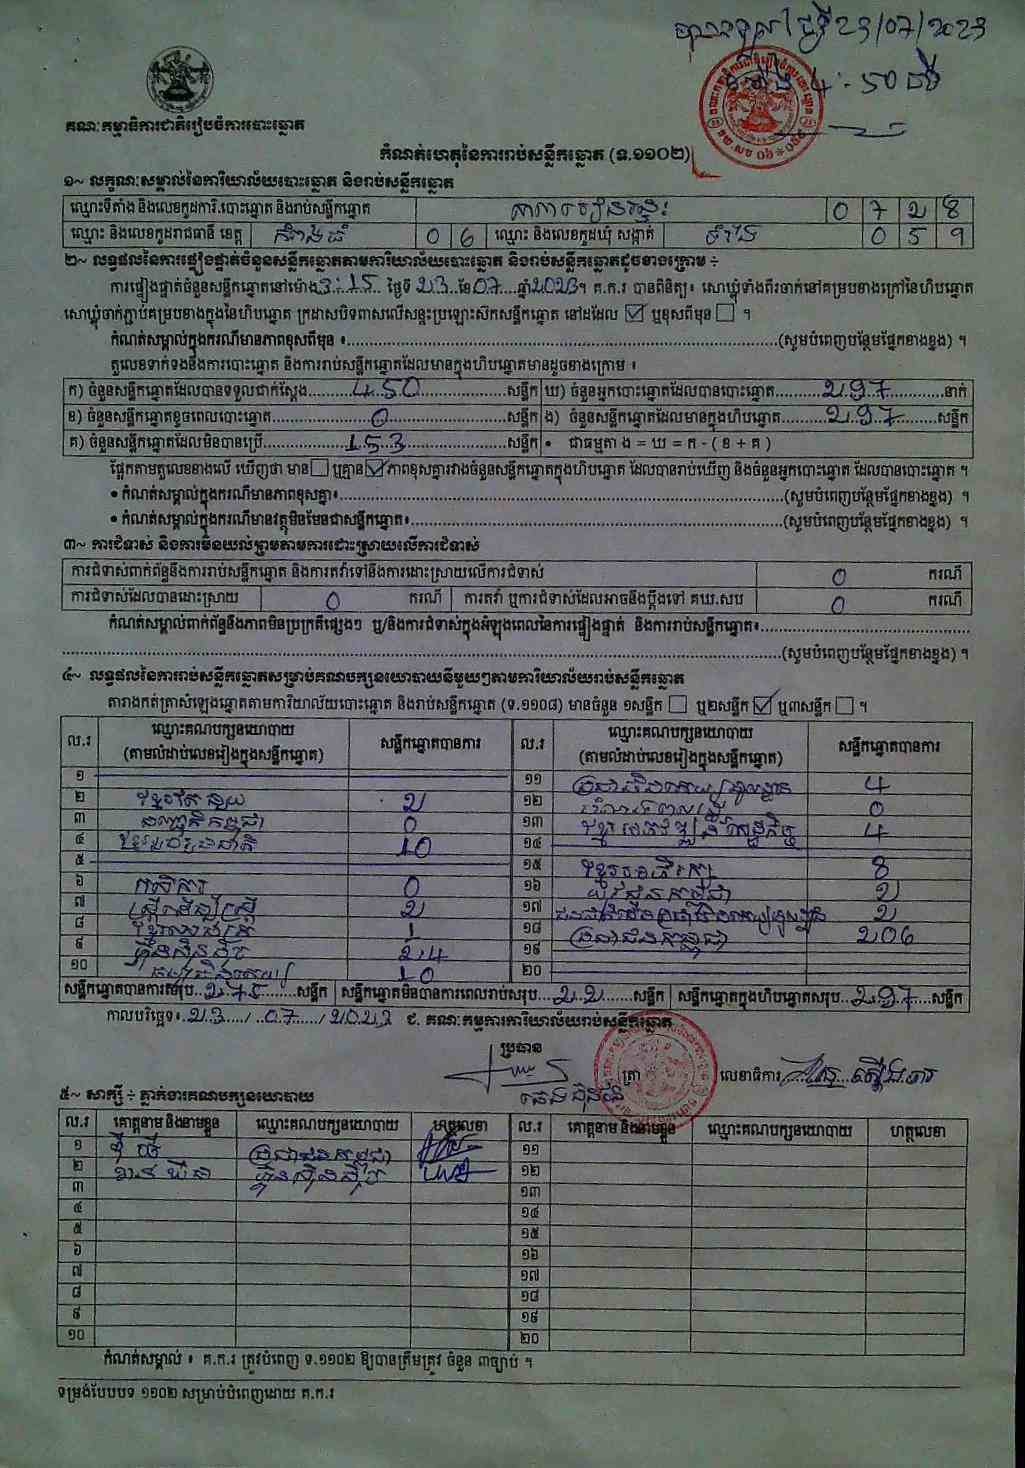 23/07/2023
4:50
គណៈកម្មាធិការជាតិរៀបចំការបោះឆ្នោត
កំណត់ហេតុនៃការរាប់សន្លឹកឆ្នោត (ទ.១១០២)
១~ លក្ខណៈសម្គាល់នៃការិយាល័យបោះឆ្នោត និងរាប់សន្លឹកឆ្នោត
ឈ្មោះទីតាំង និងលេខកូដការិ.បោះឆ្នោត និងរាប់សន្លឹកឆ្នោត 0 7 2 8
ឈ្មោះ និងលេខកូដរាជធានី ខេត្ត កំពង់ធំ 0 6 ឈ្មោះ និងលេខកូដឃុំ សង្កាត់ 0 5 9
២~ លទ្ធផលនៃការផ្ទៀងផ្ទាត់ចំនួនសន្លឹកឆ្នោតតាមការិយាល័យបោះឆ្នោត និងរាប់សន្លឹកឆ្នោតដូចខាងក្រោម ÷
ការផ្ទៀងផ្ទាត់ចំនួនសន្លឹកឆ្នោតនៅម៉ោង 3:15 ថ្ងៃទី 23 ខែ 07 ឆ្នាំ 2023។ គ.ក.រ បានពិនិត្យ៖ សោឃ្លុំទាំងពីរចាក់នៅគម្របខាងក្រៅនៃហិបឆ្នោត
សោឃ្លុំចាក់ភ្ជាប់គម្របខាងក្នុងនៃហិបឆ្នោត ក្រដាសបិទពាសលើសន្ទះប្រឡោះស៊កសន្លឹកឆ្នោត នៅដដែល ☑ ឬខុសពីមុន ☐ ។
កំណត់សម្គាល់ក្នុងករណីមានភាពខុសពីមុន ៖ (សូមបំពេញបន្ថែមផ្នែកខាងខ្នង) ។
តួលេខទាក់ទងនឹងការបោះឆ្នោត និងការរាប់សន្លឹកឆ្នោតដែលមានក្នុងហិបឆ្នោតមានដូចខាងក្រោម ៖
ក) ចំនួនសន្លឹកឆ្នោតដែលបានទទួលជាក់ស្តែង 450 សន្លឹក ឃ) ចំនួនអ្នកបោះឆ្នោតដែលបានបោះឆ្នោត 297 នាក់
ខ) ចំនួនសន្លឹកឆ្នោតខូចពេលបោះឆ្នោត 0 សន្លឹក ង) ចំនួនសន្លឹកឆ្នោតដែលមានក្នុងហិបឆ្នោត 297 សន្លឹក
គ) ចំនួនសន្លឹកឆ្នោតដែលមិនបានប្រើ 153 សន្លឹក • ជាធម្មតា ង = ឃ = ក - ( ខ + គ )
ផ្អែកតាមតួលេខខាងលើ ឃើញថា មាន ☐ ឬគ្មាន ☑ ភាពខុសគ្នារវាងចំនួនសន្លឹកឆ្នោតក្នុងហិបឆ្នោត ដែលបានរាប់ឃើញ និងចំនួនអ្នកបោះឆ្នោត ដែលបានបោះឆ្នោត ។
• កំណត់សម្គាល់ក្នុងករណីមានភាពខុសគ្នា៖ (សូមបំពេញបន្ថែមផ្នែកខាងខ្នង) ។
• កំណត់សម្គាល់ក្នុងករណីមានវត្ថុមិនមែនជាសន្លឹកឆ្នោត៖ (សូមបំពេញបន្ថែមផ្នែកខាងខ្នង) ។
៣~ ការជំទាស់ និងការមិនយល់ព្រមតាមការដោះស្រាយលើការជំទាស់
ការជំទាស់ពាក់ព័ន្ធនឹងការរាប់សន្លឹកឆ្នោត និងការតវ៉ាទៅនឹងការដោះស្រាយលើការជំទាស់ 0 ករណី
ការជំទាស់ដែលបានដោះស្រាយ 0 ករណី ការតវ៉ា ឬការជំទាស់ដែលអាចនឹងប្តឹងទៅ គឃ.សប 0 ករណី
កំណត់សម្គាល់ពាក់ព័ន្ធនឹងភាពមិនប្រក្រតីផ្សេងៗ ឬ/និងការជំទាស់ក្នុងអំឡុងពេលនៃការផ្ទៀងផ្ទាត់ និងការរាប់សន្លឹកឆ្នោត៖
(សូមបំពេញបន្ថែមផ្នែកខាងខ្នង) ។
៤~ លទ្ធផលនៃការរាប់សន្លឹកឆ្នោតសម្រាប់គណបក្សនយោបាយនីមួយៗតាមការិយាល័យរាប់សន្លឹកឆ្នោត
តារាងកត់ត្រាសំឡេងឆ្នោតតាមការិយាល័យបោះឆ្នោត និងរាប់សន្លឹកឆ្នោត (ទ.១១០៨) មានចំនួន ១សន្លឹក ☐ ឬ២សន្លឹក ☑ ឬ៣សន្លឹក ☐ ។
ល.រ ឈ្មោះគណបក្សនយោបាយ (តាមលំដាប់លេខរៀងក្នុងសន្លឹកឆ្នោត) សន្លឹកឆ្នោតបានការ ល.រ ឈ្មោះគណបក្សនយោបាយ (តាមលំដាប់លេខរៀងក្នុងសន្លឹកឆ្នោត) សន្លឹកឆ្នោតបានការ
១ ១១ 4
២ ខ្មែរតែមួយ 2 ១២ 0
៣ 0 ១៣ 4
៤ 10 ១៤
៥ ១៥ 8
៦ កសិករ 0 ១៦ 2
៧ ស្ត្រីដើម្បីស្ត្រី 2 ១៧ 2
៨ 1 ១៨ ប្រជាជនកម្ពុជា 206
៩ ហ្វ៊ុនស៊ិនប៉ិច 24 ១៩
១០ 10 ២០
សន្លឹកឆ្នោតបានការសរុប 275 សន្លឹក សន្លឹកឆ្នោតមិនបានការពេលរាប់សរុប 22 សន្លឹក សន្លឹកឆ្នោតក្នុងហិបឆ្នោតសរុប 297 សន្លឹក
កាលបរិច្ឆេទ៖ 23 / 07 / 2023 ជ. គណៈកម្មការការិយាល័យរាប់សន្លឹកឆ្នោត
ប្រធាន
ត្រា លេខាធិការ
៥~ សាក្សី ÷ ភ្នាក់ងារគណបក្សនយោបាយ
ល.រ គោត្តនាម និងនាមខ្លួន ឈ្មោះគណបក្សនយោបាយ ហត្ថលេខា ល.រ គោត្តនាម និងនាមខ្លួន ឈ្មោះគណបក្សនយោបាយ ហត្ថលេខា
១ ប្រជាជនកម្ពុជា ១១
២ ហ្វ៊ុនស៊ិនប៉ិច ១២
៣ ១៣
៤ ១៤
៥ ១៥
៦ ១៦
៧ ១៧
៨ ១៨
៩ ១៩
១០ ២០
កំណត់សម្គាល់ ៖ គ.ក.រ ត្រូវបំពេញ ទ.១១០២ ឱ្យបានត្រឹមត្រូវ ចំនួន ៣ច្បាប់ ។
ទម្រង់បែបបទ ១១០២ សម្រាប់បំពេញដោយ គ.ក.រ